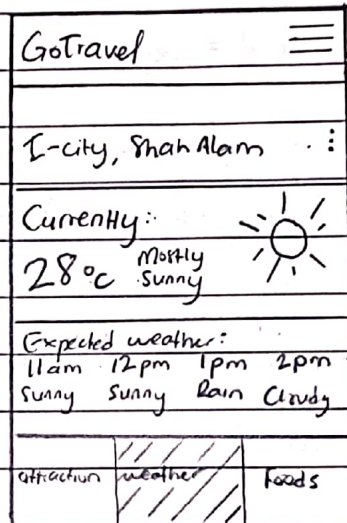 GoTravel
I-city, Shah Alam
Currently:
28°C Mostly
Sunny
Expected weather:
11am 12pm 1pm 2pm
Sunny Sunny Rain Cloudy
attraction weather Foods